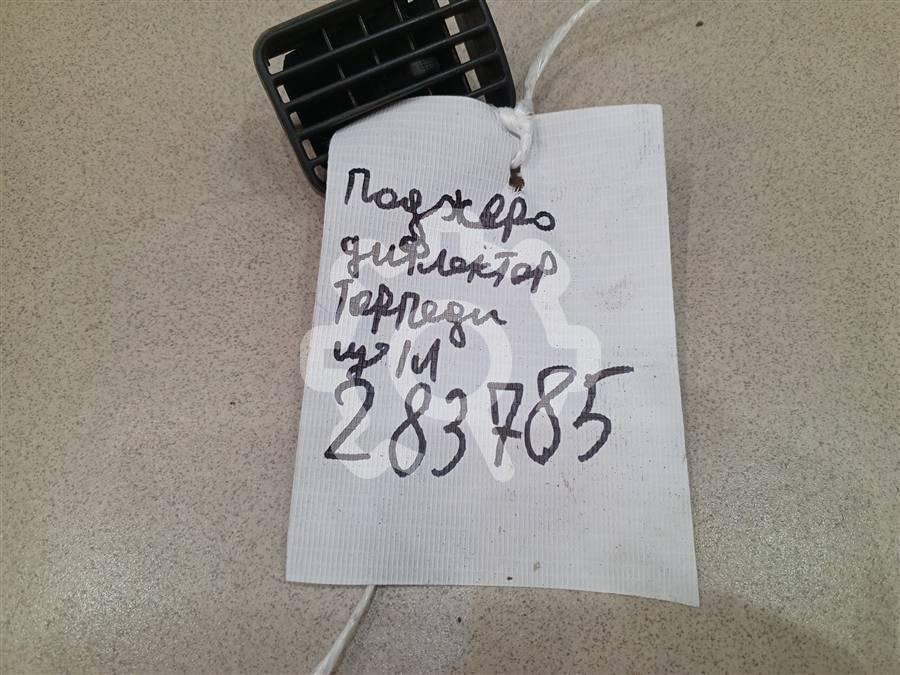 Поджеро
дифлектор
Торпеди
283785